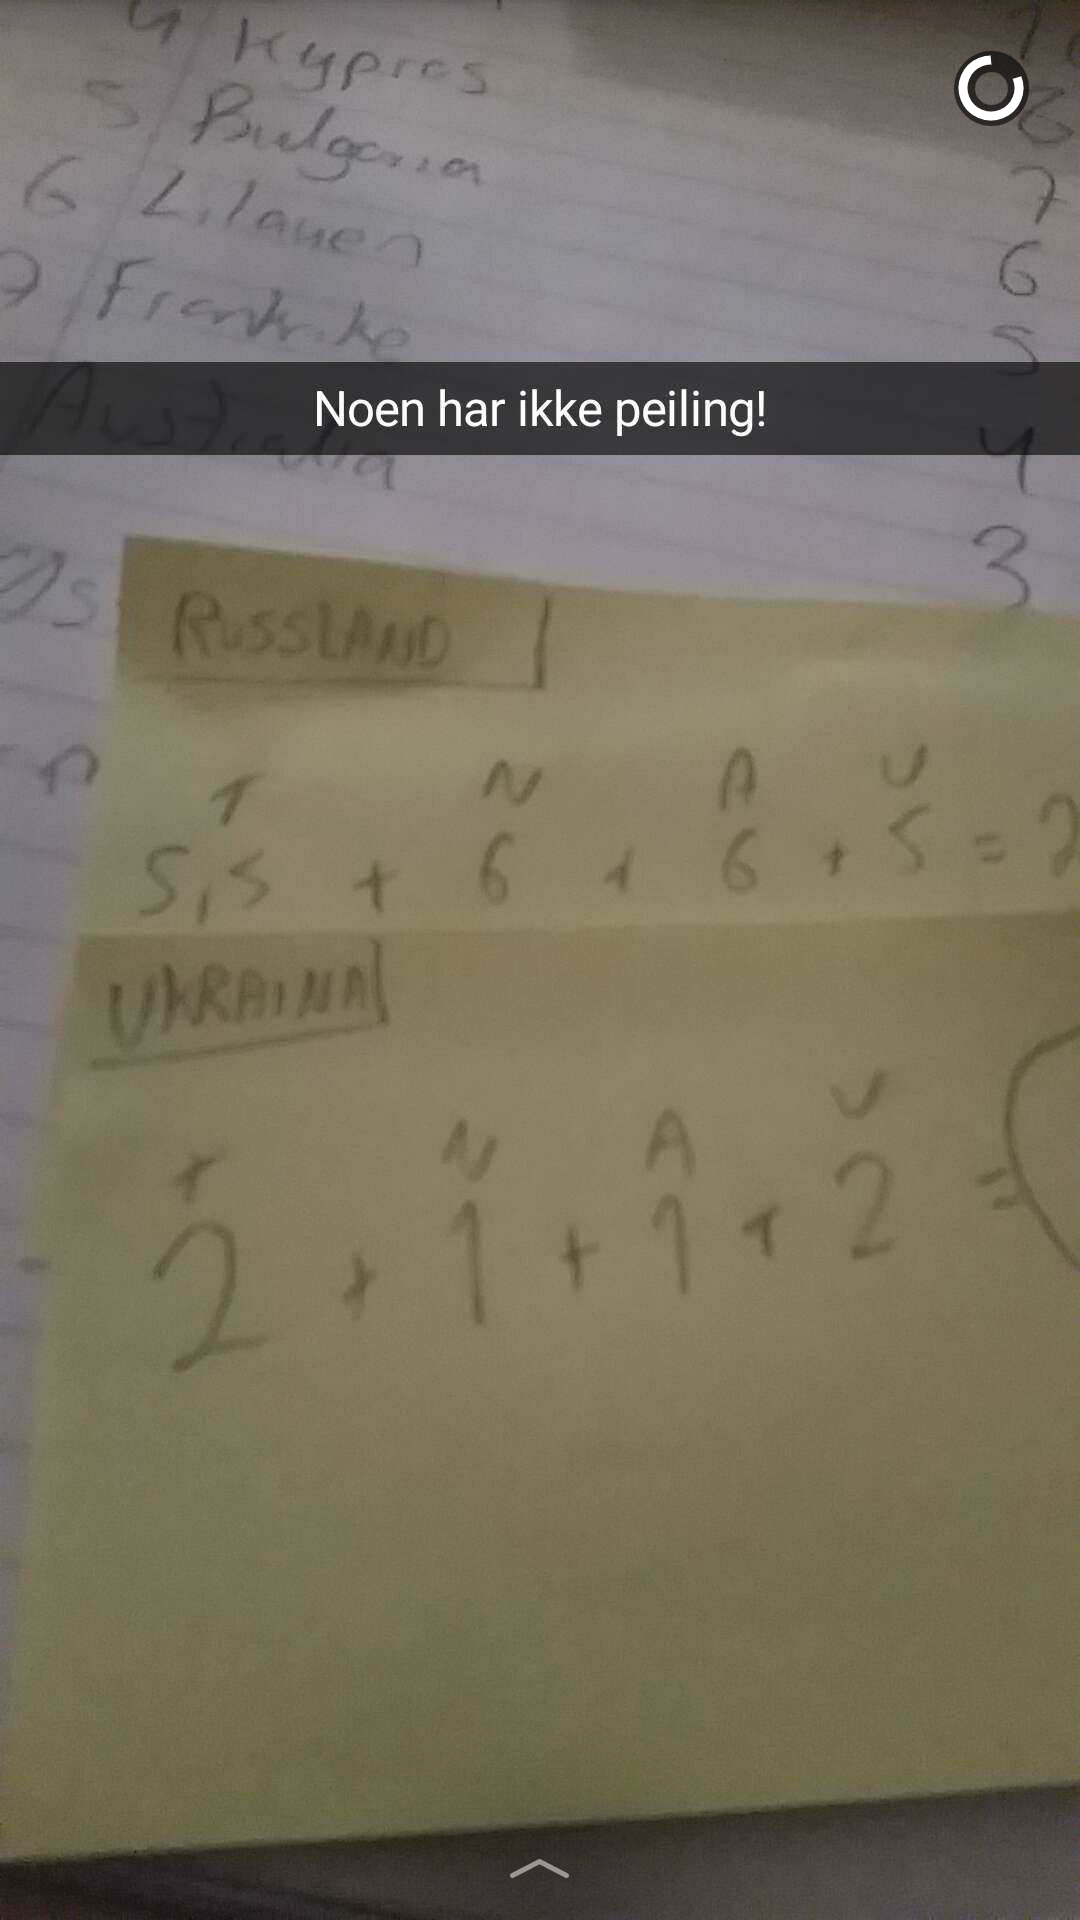 4 Kypros
6
5 Bulgaria
7
6 Litauen
6
7 Frankrike
5
Noen har ikke peiling!
Australia
4
3
RUSSLAND
T N A U
5,5 + 6 + 6 + 5 = 2
UKRAINA
T N A U
2 + 1 + 1 + 2 =